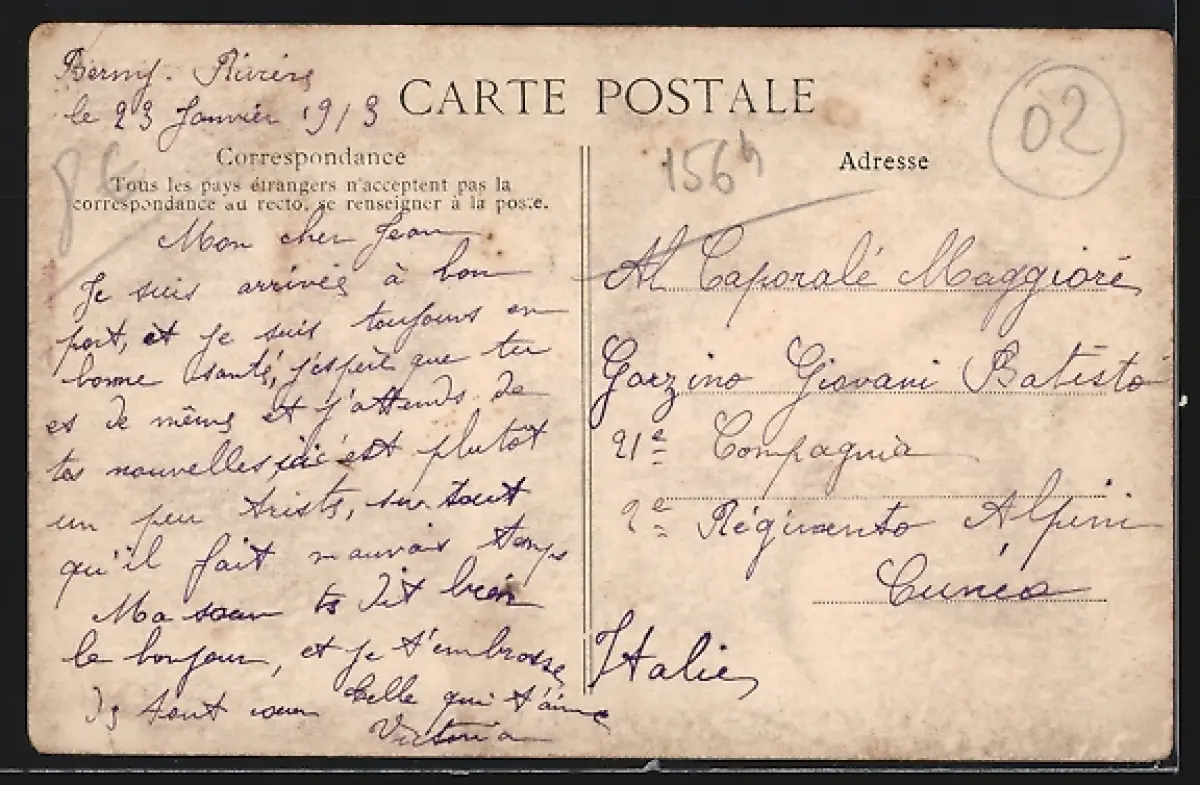 Berny-Rivière
le 23 Janvier 1913
CARTE POSTALE
02
8€
156h
Correspondance
Tous les pays étrangers n'acceptent pas la
correspondance au recto, se renseigner à la poste.
Mon cher Jean
Je suis arrivée à bon
port, et je suis toujours en
bonne santé, j'espère que tu
es de même et j'attends de
tes nouvelles, ici c'est plutot
un peu triste, surtout
qu'il fait mauvais temps
Ma soeur te dit bien
le bonjour, et je t'embrasse
de tout coeur Celle qui t'aime
Victoria
Adresse
Al Caporalé Maggioré
Garzino Giovani Batisto
21e Compagnia
2e Régimento Alpini
Cunéo
Italie